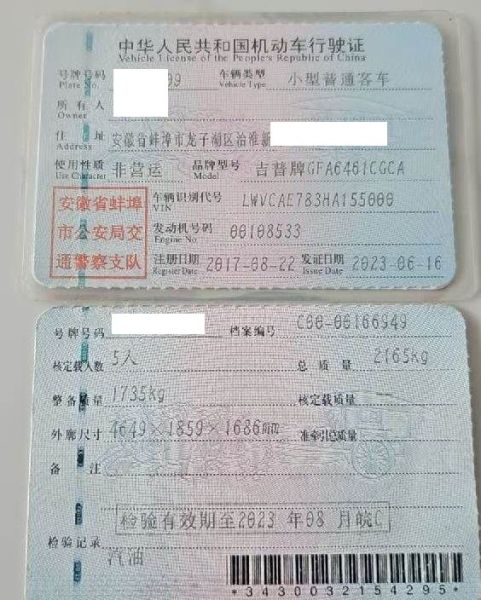 中华人民共和国机动车行驶证
Vehicle License of the People's Republic of China
号牌号码 99 车辆类型 小型普通客车
Plate No. Vehicle Type
所有人
Owner
住址 安徽省蚌埠市龙子湖区治淮新
Address
使用性质 非营运 品牌型号 吉普牌GFA6461CGCA
Use Character Model
安徽省蚌埠 车辆识别代号 LWVCAE783HA155000
VIN
市公安局交 发动机号码 00108533
Engine No.
通警察支队 注册日期 2017-08-22 发证日期 2023-06-16
Register Date Issue Date
号牌号码 档案编号 C00-00166949
核定载人数 5人 总质量 2165kg
整备质量 1735kg 核定载质量
外廓尺寸 4649×1859×1686mm 准牵引总质量
备注
检验有效期至2023年08月皖C
检验记录
汽油
*3430032154295*